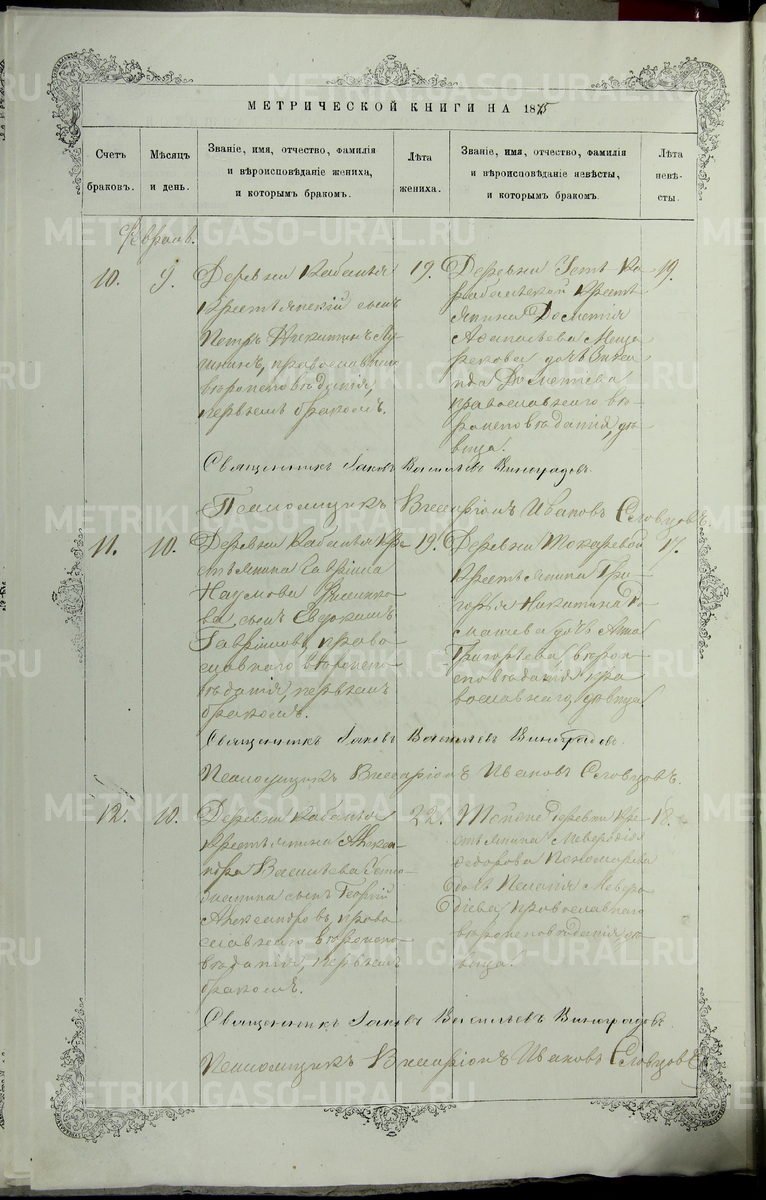 МЕТРИЧЕСКОЙ КНИГИ НА 1875
Счетъ
браковъ.
Мѣсяцъ
и день.
Званіе, имя, отчество, фамилія
и вѣроисповѣданіе жениха,
и которымъ бракомъ.
Лѣта
жениха.
Званіе, имя, отчество, фамилія
и вѣроисповѣданіе невѣсты,
и которымъ бракомъ.
Лѣта
невѣ-
сты.
Февраль.
10.
9.
Деревни Кабанья
крестьянскій сынъ
Петръ Никитинъ
православнаго
вѣроисповѣданія,
первымъ бракомъ.
19.
Деревни Усть Ка-
рабольской кресть-
янина Дометія
Афанасьева Меща-
рякова дочь
Дометіева
православнаго вѣ-
роисповѣданія, дѣ-
вица.
19.
Священникъ Іаковъ Васильевъ Виноградовъ.
Псаломщикъ Виссаріонъ Ивановъ Словцовъ.
11.
10.
Деревни Кабанья кре-
стьянина Гавріила
Наумова
сынъ Евдокимъ
Гавріиловъ, право-
славнаго вѣроиспо-
вѣданія, первымъ
бракомъ.
19.
Деревни Токаревой
крестьянина Гри-
горья Никитина
дочь Анна
Григорьева, вѣрои-
сповѣданія пра-
вославнаго, дѣвица
17.
Священникъ Іаковъ Васильевъ Виноградовъ.
Псаломщикъ Виссаріонъ Ивановъ Словцовъ.
12.
10.
Деревни Кабанья
крестьянина Алекса-
ндра Васильева
сынъ Георгій
Александровъ, право-
славнаго вѣроиспо-
вѣданія, первымъ
бракомъ.
22.
Тойже деревни кре-
стьянина
Федорова Пономарева
дочь Пелагія
православнаго
вѣроисповѣданія, дѣ-
вица.
18.
Священникъ Іаковъ Васильевъ Виноградовъ.
Псаломщикъ Виссаріонъ Ивановъ Словцовъ.
METRIKI.GASO-URAL.RU